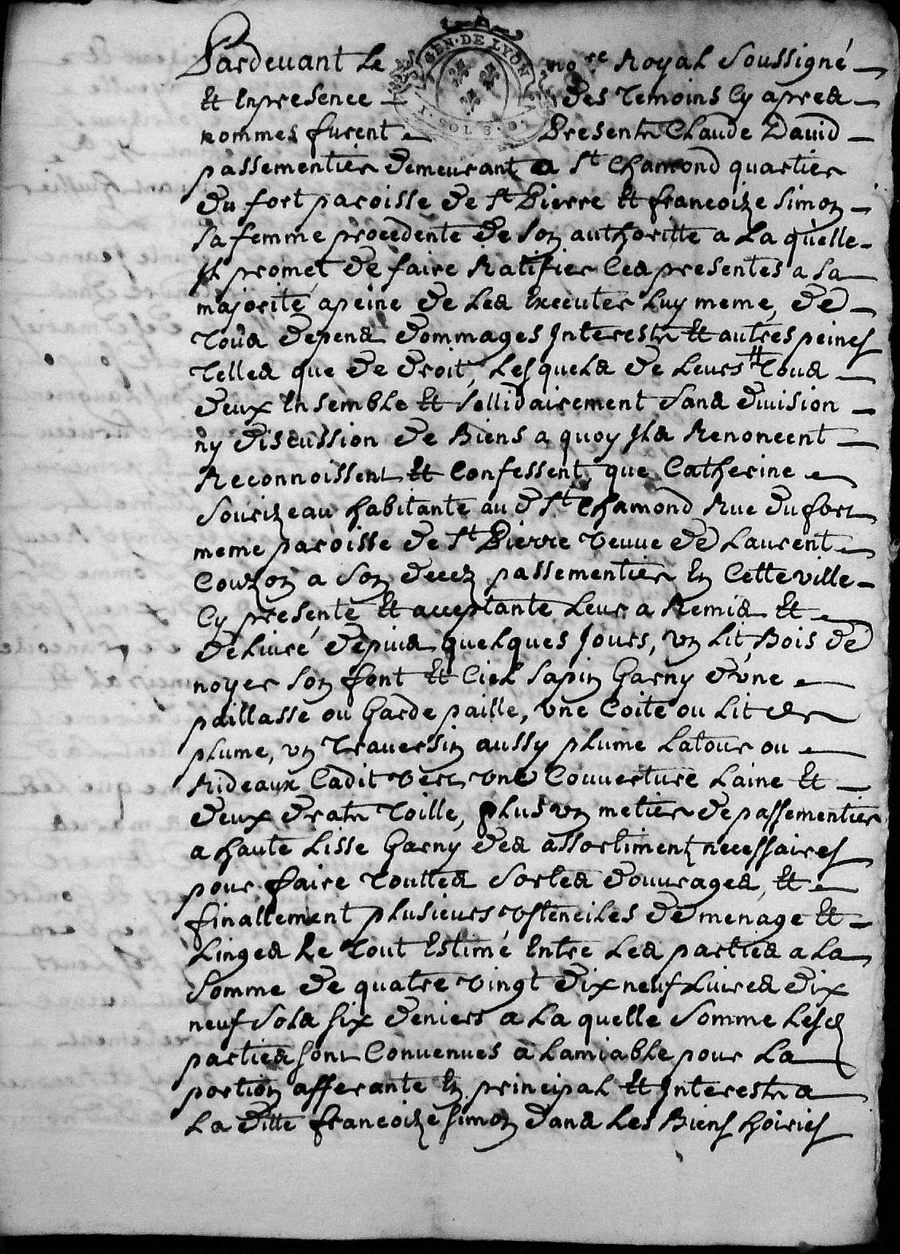 GEN · DE LYON
SOLS
Pardevant Le no.re Royal Soussigné
Et Enpresence des Temoins Cy apres
nommes furent Presents Claude David
passementier demeurant a St Chamond quartier
du fort paroisse de St Pierre Et francoize Simon
sa femme procedente de son authoritte a La quelle
Il promet de faire Ratifier Ces presentes a sa
majorité a peine de Les Executer Luy meme, de
Tous depens dommages Interests Et autres peines
Telles que de droit, Lesquels de Leurs Tous
deux Ensemble Et sollidairement sans division
ny discussion de Biens a quoy Ils Renoncent
Reconnoissent Et Confessent, que Catherine
Sourizeau habitante au d St Chamond Rue du fort
meme paroisse de St Pierre veuve de Laurent
Couzon a son decez passementier En Cette ville
Cy presente Et acceptante Leur a Remis Et
delivré depuis quelques Jours, un Lit Bois de
noyer son font Et Ciel sapin Garny d'une
paillasse ou Garde paille, une Coite ou Lit de
plume, un Traversin aussy plume Latour ou
Rideaux Cadit vert une Couverture Laine Et
deux drats Toille, plus un metier de passementier
a haute Lisse Garny des assortiments necessaires
pour faire Touttes sortes d'ouvrages, Et
finallement plusieurs ustenciles de menage Et
Linges Le Tout Estimé Entre Les parties a La
somme de quatre vingt dix neuf Livres dix
neuf sols six deniers a La quelle somme Lesd
parties sont Convenues a Lamiable pour La
portion afferante En principal Et Interests a
La ditte francoize Simon dans Les Biens hoiries